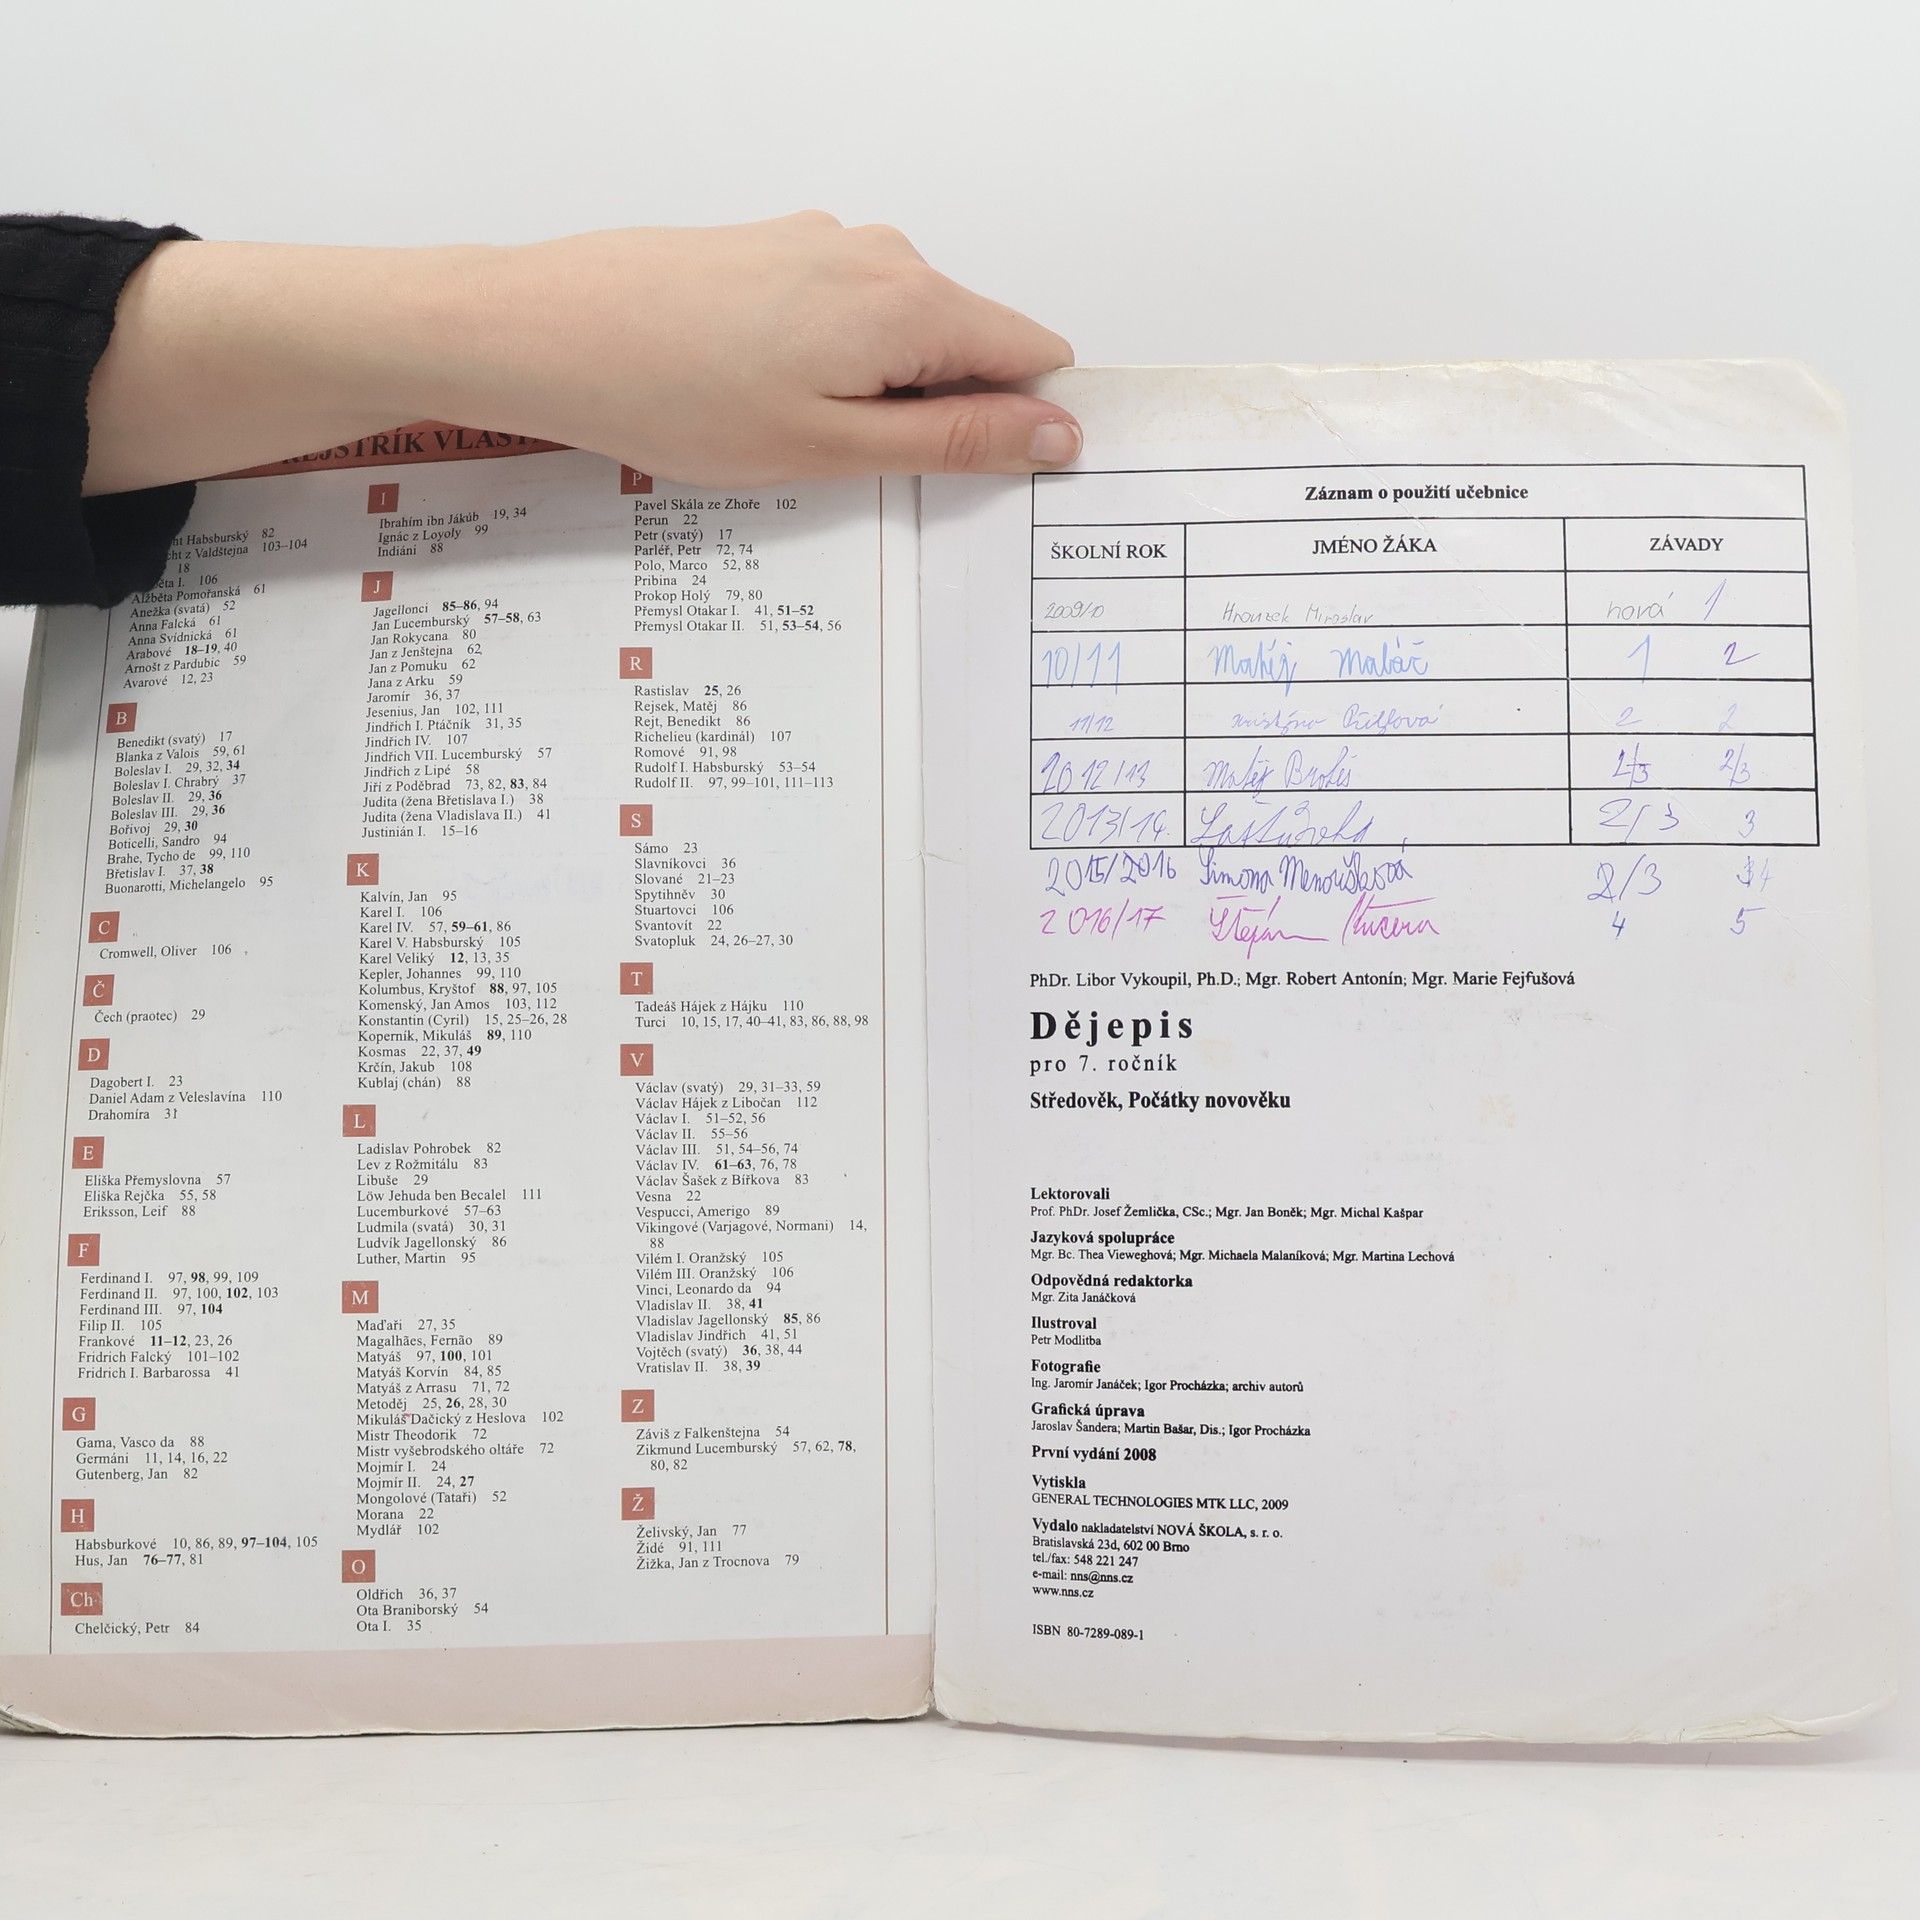 REJSTŘÍK
Habsburský 82
z Valdštejna 103–104
18
I. 106
Alžběta Pomořanská 61
Anežka (svatá) 52
Anna Falcká 61
Anna Svídnická 61
Arabové 18–19, 40
Arnošt z Pardubic 59
Avarové 12, 23
B
Benedikt (svatý) 17
Blanka z Valois 59, 61
Boleslav I. 29, 32, 34
Boleslav I. Chrabrý 37
Boleslav II. 29, 36
Boleslav III. 29, 36
Bořivoj 29, 30
Boticelli, Sandro 94
Brahe, Tycho de 99, 110
Břetislav I. 37, 38
Buonarotti, Michelangelo 95
C
Cromwell, Oliver 106
Č
Čech (praotec) 29
D
Dagobert I. 23
Daniel Adam z Veleslavína 110
Drahomíra 31
E
Eliška Přemyslovna 57
Eliška Rejčka 55, 58
Eriksson, Leif 88
F
Ferdinand I. 97, 98, 99, 109
Ferdinand II. 97, 100, 102, 103
Ferdinand III. 97, 104
Filip II. 105
Frankové 11–12, 23, 26
Fridrich Falcký 101–102
Fridrich I. Barbarossa 41
G
Gama, Vasco da 88
Germáni 11, 14, 16, 22
Gutenberg, Jan 82
H
Habsburkové 10, 86, 89, 97–104, 105
Hus, Jan 76–77, 81
Ch
Chelčický, Petr 84
I
Ibrahím ibn Jákúb 19, 34
Ignác z Loyoly 99
Indiáni 88
J
Jagellonci 85–86, 94
Jan Lucemburský 57–58, 63
Jan Rokycana 80
Jan z Jenštejna 62
Jan z Pomuku 62
Jana z Arku 59
Jaromír 36, 37
Jesenius, Jan 102, 111
Jindřich I. Ptáčník 31, 35
Jindřich IV. 107
Jindřich VII. Lucemburský 57
Jindřich z Lipé 58
Jiří z Poděbrad 73, 82, 83, 84
Judita (žena Břetislava I.) 38
Judita (žena Vladislava II.) 41
Justinián I. 15–16
K
Kalvín, Jan 95
Karel I. 106
Karel IV. 57, 59–61, 86
Karel V. Habsburský 105
Karel Veliký 12, 13, 35
Kepler, Johannes 99, 110
Kolumbus, Kryštof 88, 97, 105
Komenský, Jan Amos 103, 112
Konstantin (Cyril) 15, 25–26, 28
Koperník, Mikuláš 89, 110
Kosmas 22, 37, 49
Krčín, Jakub 108
Kublaj (chán) 88
L
Ladislav Pohrobek 82
Lev z Rožmitálu 83
Libuše 29
Löw Jehuda ben Becalel 111
Lucemburkové 57–63
Ludmila (svatá) 30, 31
Ludvík Jagellonský 86
Luther, Martin 95
M
Maďaři 27, 35
Magalhães, Fernão 89
Matyáš 97, 100, 101
Matyáš Korvín 84, 85
Matyáš z Arrasu 71, 72
Metoděj 25, 26, 28, 30
Mikuláš Dačický z Heslova 102
Mistr Theodorik 72
Mistr vyšebrodského oltáře 72
Mojmír I. 24
Mojmír II. 24, 27
Mongolové (Tataři) 52
Morana 22
Mydlář 102
O
Oldřich 36, 37
Ota Braniborský 54
Ota I. 35
P
Pavel Skála ze Zhoře 102
Perun 22
Petr (svatý) 17
Parléř, Petr 72, 74
Polo, Marco 52, 88
Pribina 24
Prokop Holý 79, 80
Přemysl Otakar I. 41, 51–52
Přemysl Otakar II. 51, 53–54, 56
R
Rastislav 25, 26
Rejsek, Matěj 86
Rejt, Benedikt 86
Richelieu (kardinál) 107
Romové 91, 98
Rudolf I. Habsburský 53–54
Rudolf II. 97, 99–101, 111–113
S
Sámo 23
Slavníkovci 36
Slované 21–23
Spytihněv 30
Stuartovci 106
Svantovít 22
Svatopluk 24, 26–27, 30
T
Tadeáš Hájek z Hájku 110
Turci 10, 15, 17, 40–41, 83, 86, 88, 98
V
Václav (svatý) 29, 31–33, 59
Václav Hájek z Libočan 112
Václav I. 51–52, 56
Václav II. 55–56
Václav III. 51, 54–56, 74
Václav IV. 61–63, 76, 78
Václav Šašek z Bířkova 83
Vesna 22
Vespucci, Amerigo 89
Vikingové (Varjagové, Normani) 14,
88
Vilém I. Oranžský 105
Vilém III. Oranžský 106
Vinci, Leonardo da 94
Vladislav II. 38, 41
Vladislav Jagellonský 85, 86
Vladislav Jindřich 41, 51
Vojtěch (svatý) 36, 38, 44
Vratislav II. 38, 39
Z
Záviš z Falkenštejna 54
Zikmund Lucemburský 57, 62, 78,
80, 82
Ž
Želivský, Jan 77
Židé 91, 111
Žižka, Jan z Trocnova 79
Záznam o použití učebnice
ŠKOLNÍ ROK JMÉNO ŽÁKA ZÁVADY
2009/10 Miroslav nová 1
10/11 Matěj Malář 1 2
11/12 2 2
2012/13 Matěj 2/3 2/3
2013/14. 2/3 3
2015/2016 Simona 2/3 4
2016/17 Štěpán Kučera 4 5
PhDr. Libor Vykoupil, Ph.D.; Mgr. Robert Antonín; Mgr. Marie Fejfušová
Dějepis
pro 7. ročník
Středověk, Počátky novověku
Lektorovali
Prof. PhDr. Josef Žemlička, CSc.; Mgr. Jan Boněk; Mgr. Michal Kašpar
Jazyková spolupráce
Mgr. Bc. Thea Vieweghová; Mgr. Michaela Malaníková; Mgr. Martina Lechová
Odpovědná redaktorka
Mgr. Zita Janáčková
Ilustroval
Petr Modlitba
Fotografie
Ing. Jaromír Janáček; Igor Procházka; archiv autorů
Grafická úprava
Jaroslav Šandera; Martin Bašar, Dis.; Igor Procházka
První vydání 2008
Vytiskla
GENERAL TECHNOLOGIES MTK LLC, 2009
Vydalo nakladatelství NOVÁ ŠKOLA, s. r. o.
Bratislavská 23d, 602 00 Brno
tel./fax: 548 221 247
e-mail: nns@nns.cz
www.nns.cz
ISBN 80-7289-089-1